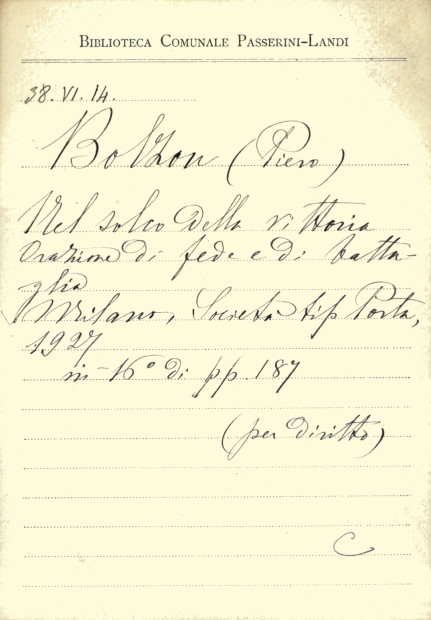 BIBLIOTECA COMUNALE PASSERINI-LANDI
38.VI.14.
Bolzon (Piero)
Nel solco della vittoria
Orazione di fede e di batta-
glia
Milano, Società tip Porta,
1927
in-16° di pp. 187
(per diritto)
C